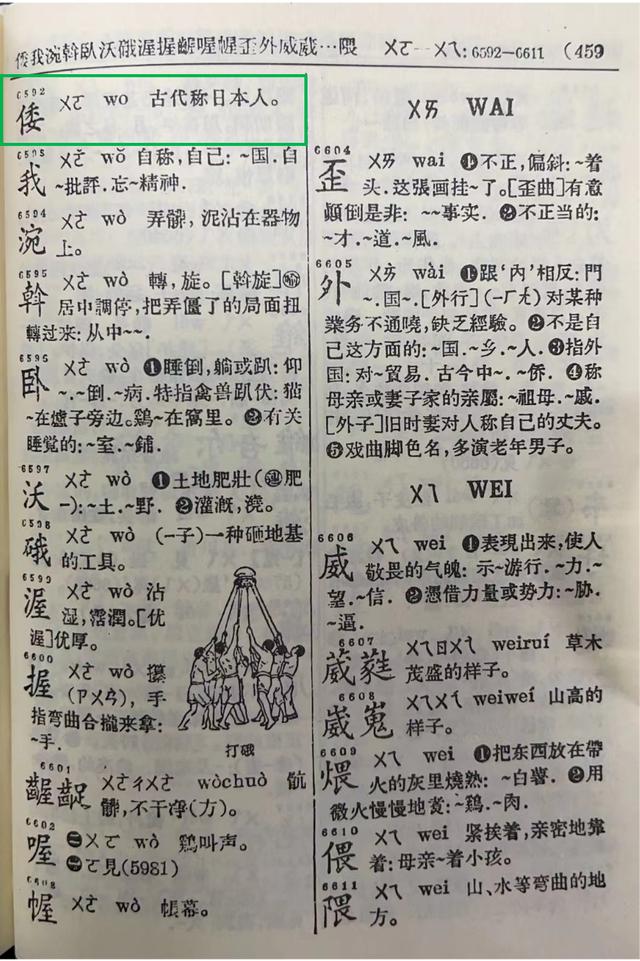 倭我涴斡臥沃硪渥握齷喔幄歪外威葳…隈 ㄨㄛ—ㄨㄟ:6592—6611 (459
6592
倭 ㄨㄛ wo 古代称日本人。
我 ㄨㄛˇ wǒ 自称,自己: ~国. 自
~批評. 忘~精神.
6594
涴 ㄨㄛˋ wò 弄髒, 泥沾在器物
上。
6595
斡 ㄨㄛˋ wò 轉, 旋。[斡旋]
居中調停, 把弄僵了的局面扭
轉过来: 从中~~.
臥 ㄨㄛˋ wò ❶睡倒, 躺或趴: 仰
~. ~倒. ~病. 特指禽兽趴伏: 猫
~在爐子旁边。鷄~在窩里. ❷有关
睡覚的: ~室. ~鋪.
6597
沃 ㄨㄛˋ wò ❶土地肥壯(連肥
—): ~土. ~野. ❷灌漑, 澆。
6598
硪 ㄨㄛˋ wò (—子)一种砸地基
的工具。
6599
渥 ㄨㄛˋ wò 沾
湿, 霑潤。[优
渥]优厚。
6600
握 ㄨㄛˋ wò 攥
(ㄗㄨㄢˋ), 手
指弯曲合攏来拿:
~手.
打硪
6601
齷齪 ㄨㄛˋㄔㄨㄛˋ wòchuò 骯
髒, 不干凈(方)。
6602
喔 ㊀ㄨㄛ wo 鷄叫声。
㊁ㄛ見(5981)
幄 ㄨㄛˋ wò 帳幕。
ㄨㄞ WAI
6604
歪 ㄨㄞ wai ❶不正, 偏斜: ~着
头. 这張画挂~了。[歪曲]有意
顛倒是非: ~~事实. ❷不正当的:
~才. ~道. ~風.
6605
外 ㄨㄞˋ wài ❶跟‘内’相反: 門
~. 国~. [外行](—ㄏㄤˊ)对某种
業务不通嘵, 缺乏經驗。❷不是自
己这方面的: ~国. ~乡. ~人. ❸指外
国: 对~貿易. 古今中~. ~侨. ❹称
母亲或妻子家的亲屬: ~祖母. ~戚.
[外子]旧时妻对人称自己的丈夫。
❺戏曲脚色名, 多演老年男子。
ㄨㄟ WEI
6606
威 ㄨㄟ wei ❶表現出来, 使人
敬畏的气魄: 示~游行. ~力. ~
望. ~信. ❷憑借力量或势力: ~胁.
~逼.
6607
葳蕤 ㄨㄟㄖㄨㄟˊ weiruí 草木
茂盛的样子。
6608
崴嵬 ㄨㄟㄨㄟˊ weiweí 山高的
样子。
6609
煨 ㄨㄟ wei ❶把东西放在帶
火的灰里燒熟: ~白薯. ❷用
微火慢慢地煑: ~鷄. ~肉.
6610
偎 ㄨㄟ wei 紧挨着, 亲密地靠
着: 母亲~着小孩。
6611
隈 ㄨㄟ wei 山、水等弯曲的地
方。